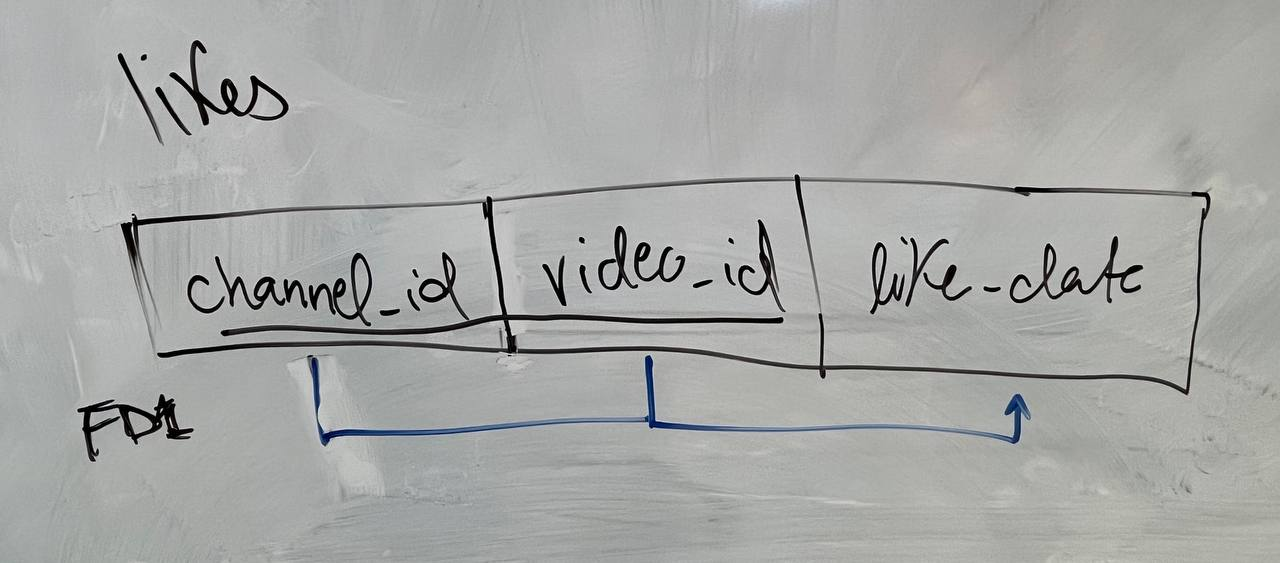 likes
channel_id video_id like-date
FD1